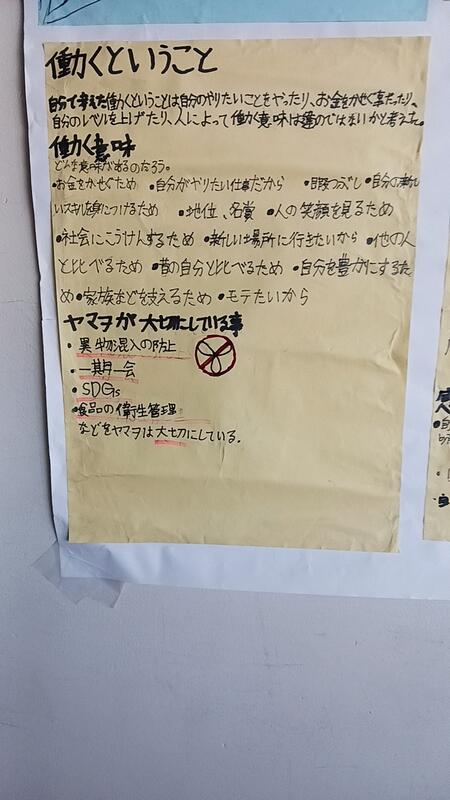 働くということ
自分で考えた働くということは自分のやりたいことをやったり、お金をかせぐ事だったり、
自分のレベルを上げたり、人によって働く意味は違うのではないかと考えた。
働く意味
どんな意味があるのだろう。
•お金をかせぐため •自分がやりたい仕事だから •暇つぶし •自分の新し
いスキルを身につけるため •地位、名賞 •人の笑顔を見るため
•社会にこうけんするため •新しい場所に行きたいから •他の人
と比べるため •昔の自分と比べるため •自分を豊かにするた
め •家族などを支えるため •モテたいから
ヤマヲが大切にしている事
•異物混入の防止
•一期一会
•SDGs
•食品の衛生管理
などをヤマヲは大切にしている。